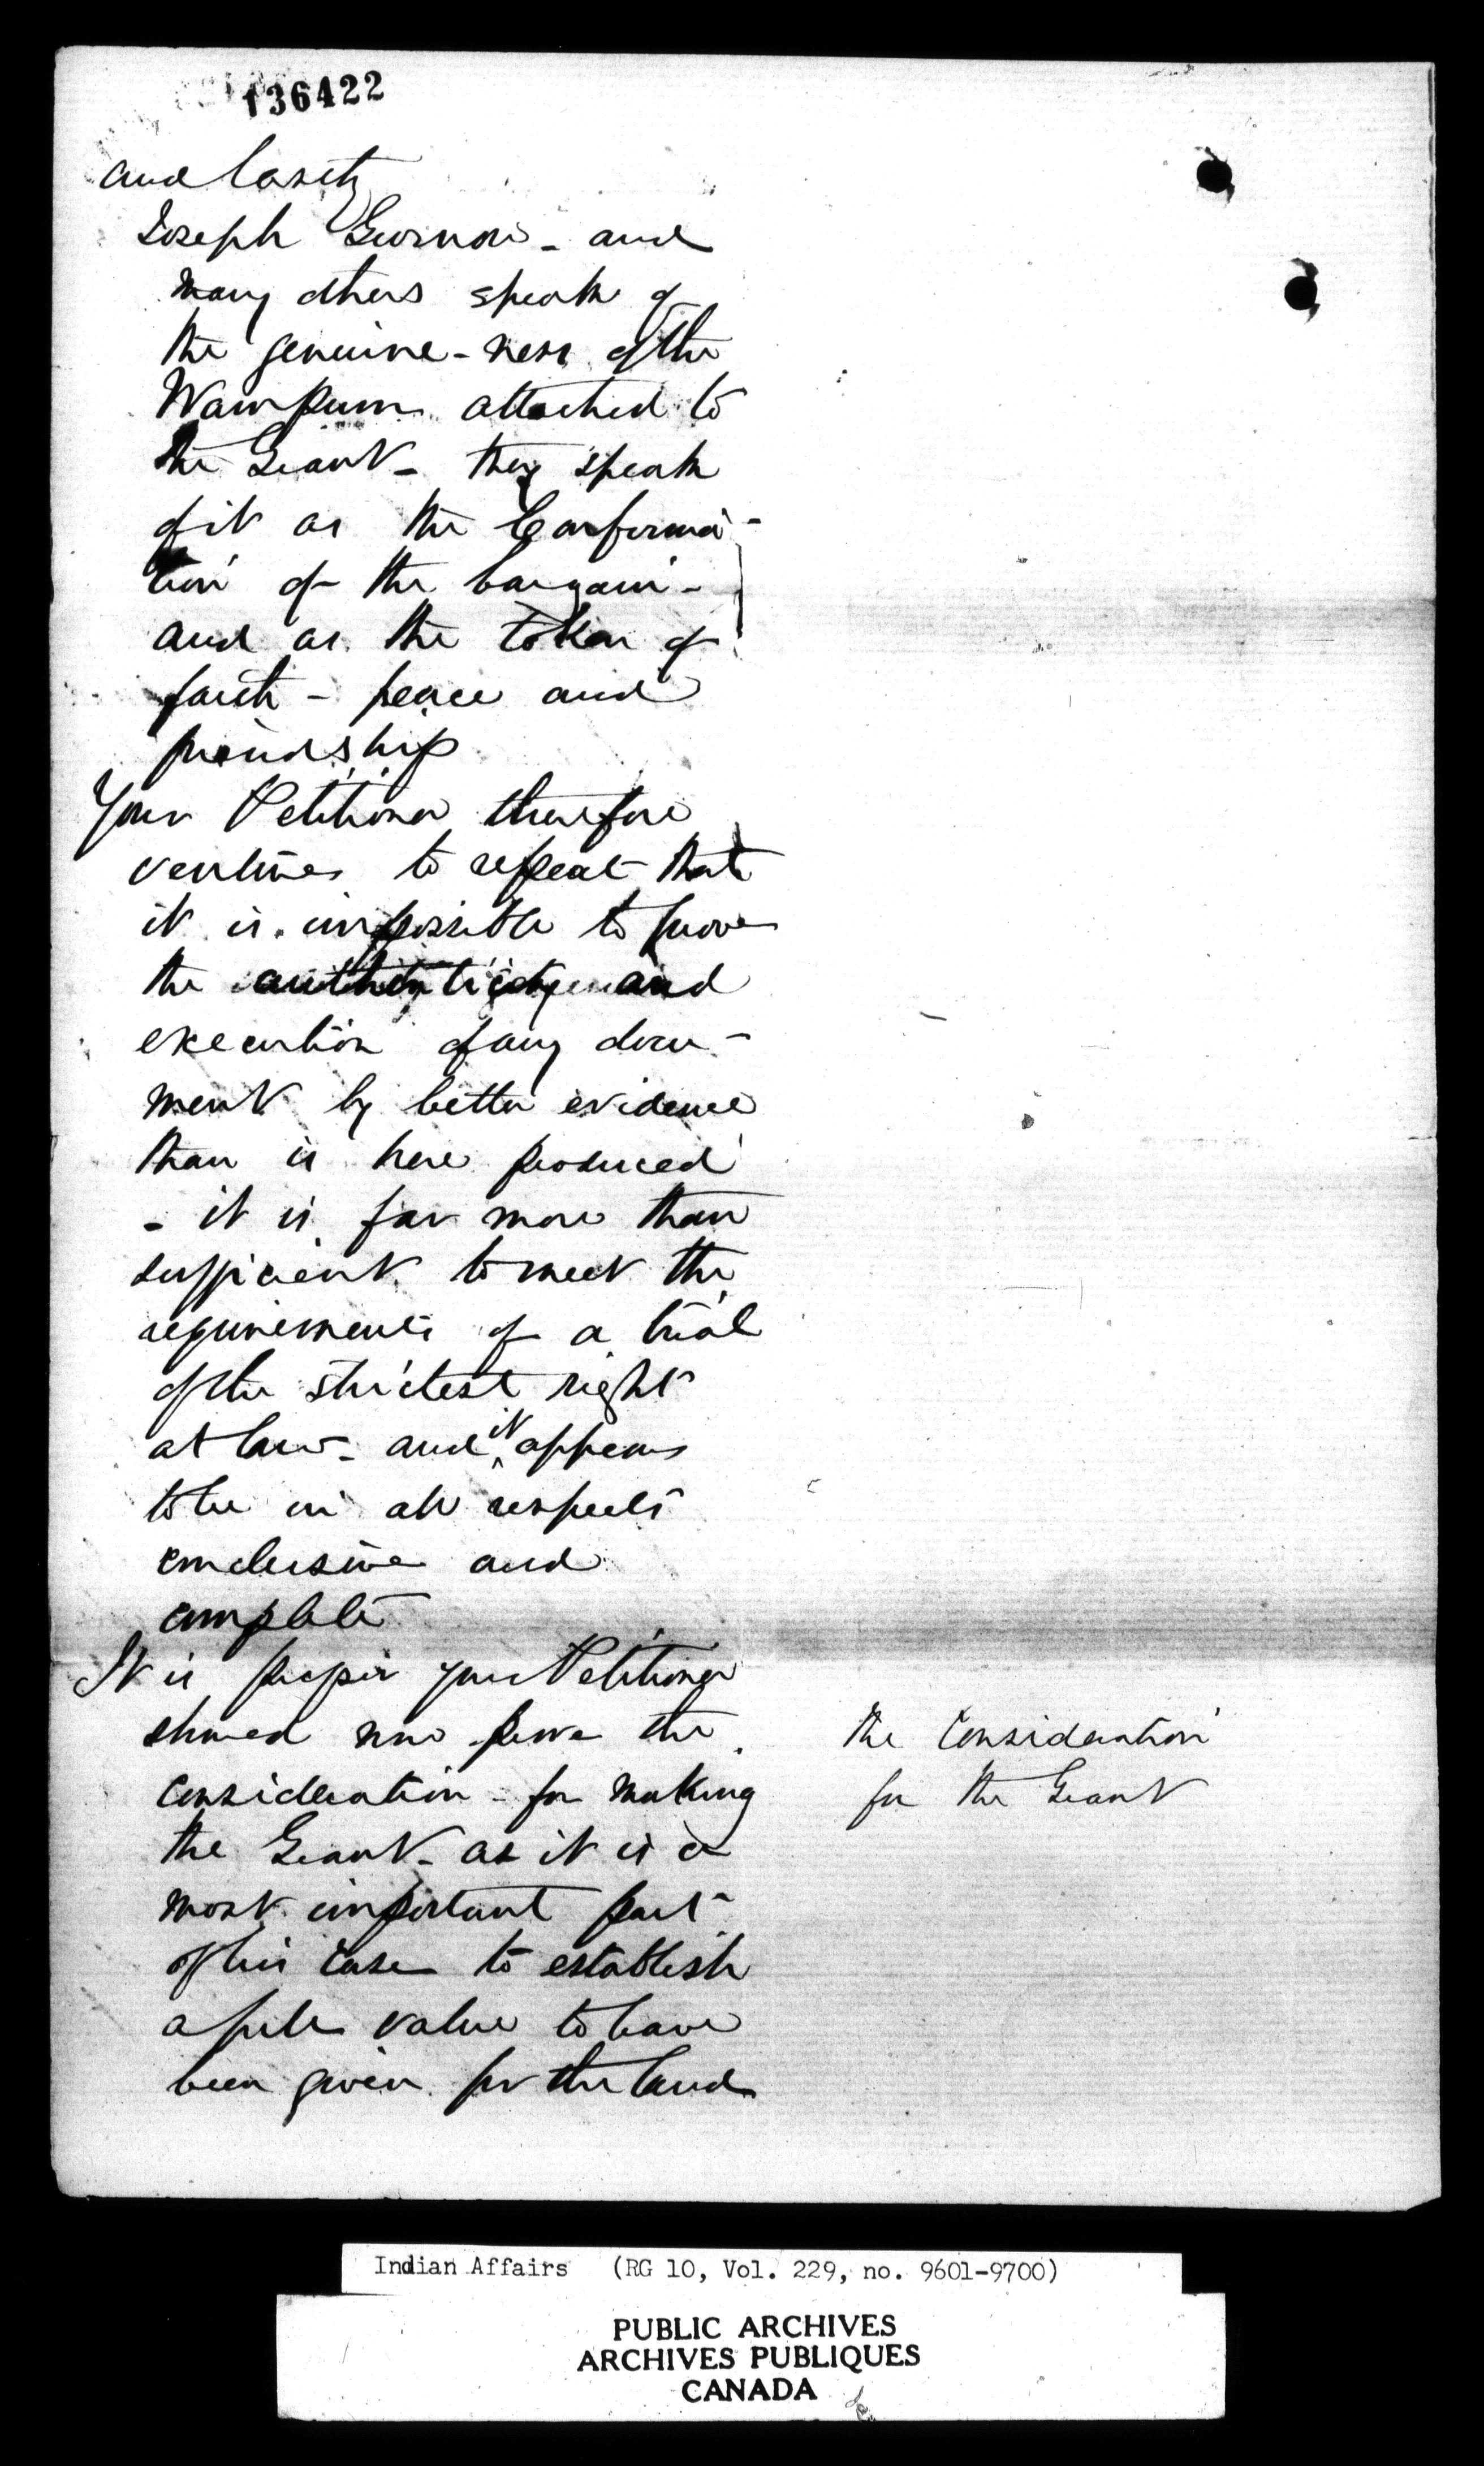 136422
and lastly
Joseph Gurnow - and
many others speak of
the genuine-ness of the
Wampum attached to
the Grant - they speak
of it as the Confirma-
tion of the bargain -
and as the token of
faith - peace and
friendship
Your Petitioner therefore
ventures to repeat that
it is impossible to prove
the authenticity and
execution of any docu-
ment by better evidence
than is here produced
- it is far more than
sufficient to meet the
requirements of a trial
of the strictest right
at law - and it appears
to be in all respects
conclusive and
complete
It is proper your Petitioner
should now prove the
consideration for making
the Grant - as it is a
most important part
of his case to establish
a full value to have
been given for the land
the Consideration
for the Grant
Indian Affairs (RG 10, Vol. 229, no. 9601-9700)
PUBLIC ARCHIVES
ARCHIVES PUBLIQUES
CANADA